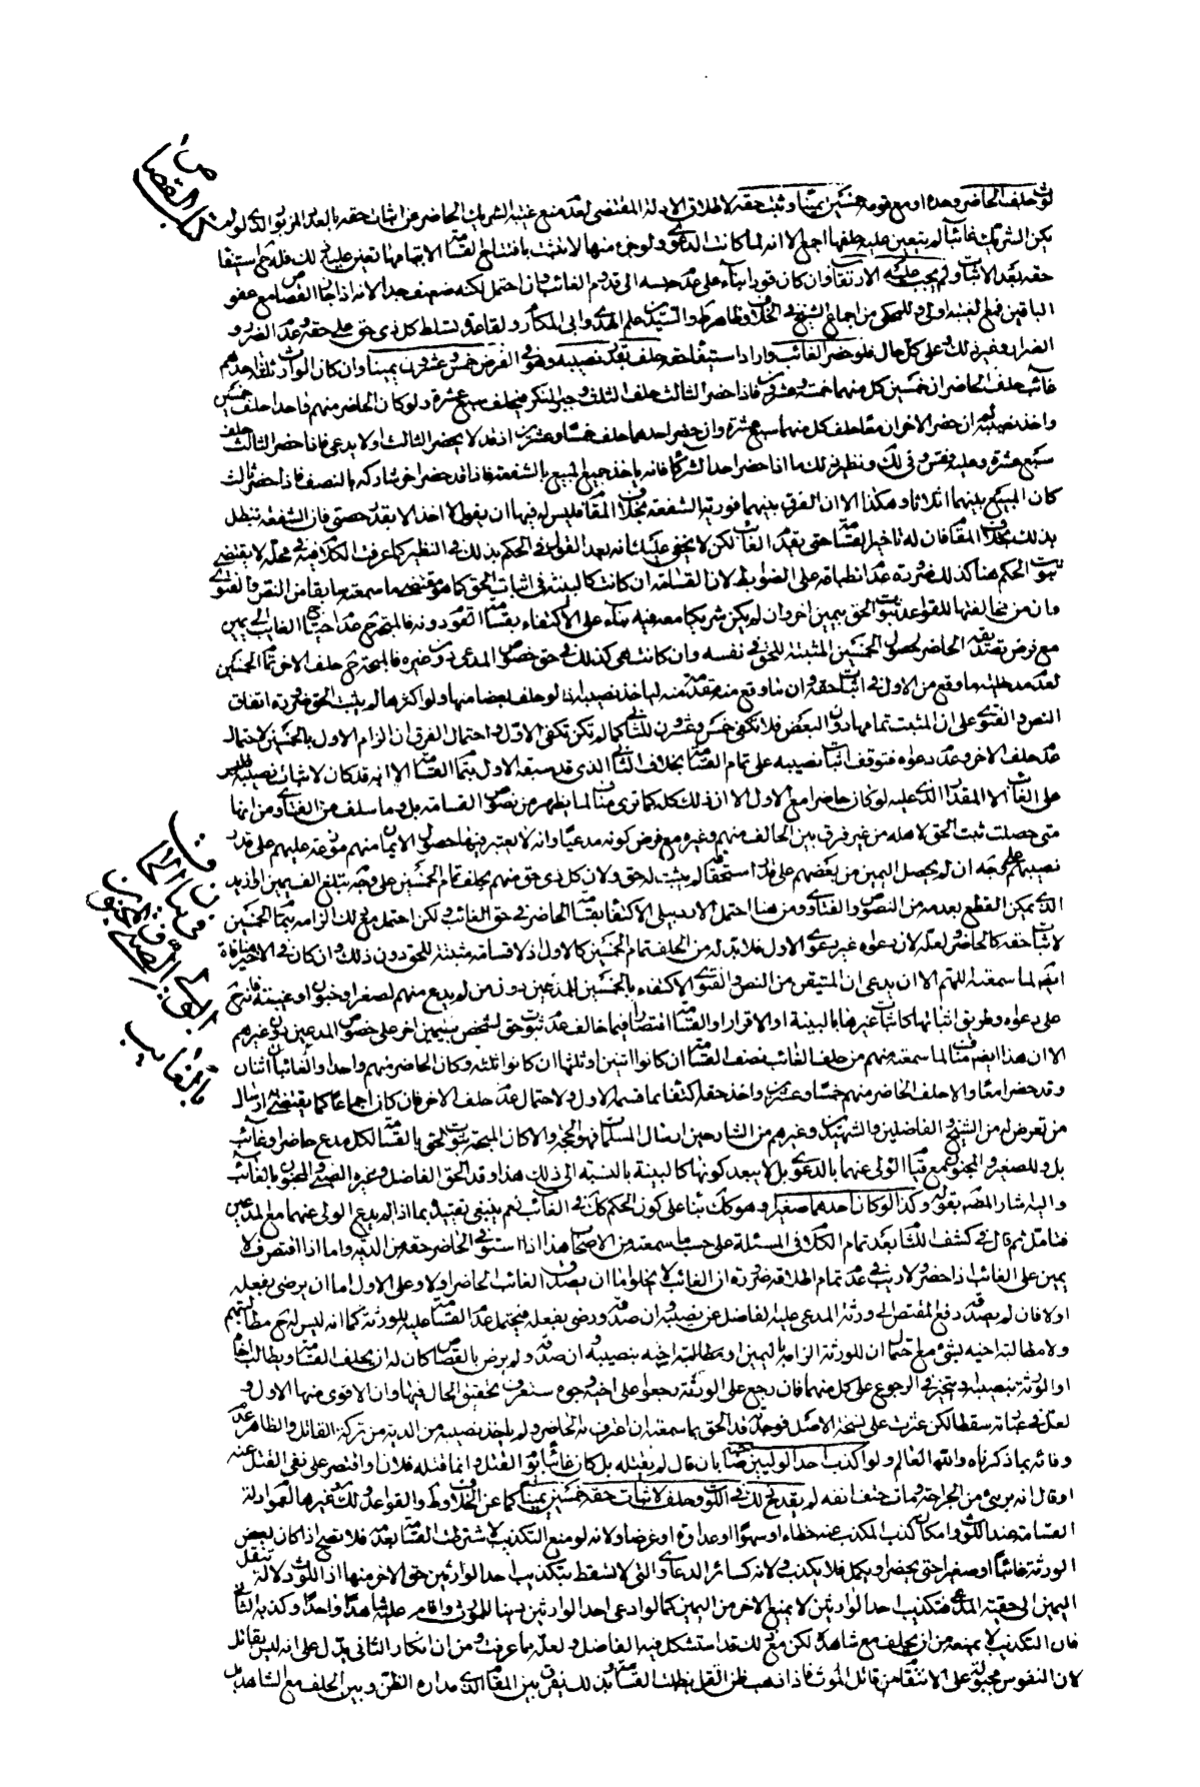 كتاب القصاص
لوث حلف الحاضر وحده او مع قومه خمسين يمينا وثبت حقه لاطلاق الادلة المقتضى لعدم منع غيبة الشريك الحاضر عن اثبات حقه بالعدد المزبور الذى لو لم
يكن الشريك غائبا لم يتعين عليه حلفها اجمع الا انه لما كانت الدعوى ولو جزء منها لا تثبت بافتتاح القسامة الا بتمامها تعين عليه ذلك فله ح استيفا
حقه بعد الاثبات ولم يجب عليه الارتقاب وان كان قودا بناء على عدم حبسه الى قدوم الغائب وان احتمل لكنه ضعيف جدا لانه اذا جاز القصاص مع عفو
الباقين فمع الغيبة اولى وللمحكى من اجماع الشيخ في الخلاف وظاهر ط والسيدين علم الهدى وابى المكارم ولقاعدة تسلط كل ذى حق على حقه وعدم الضرر و
الضرار وغير ذلك وعلى كل حال فلو حضر الغائب واراد استيفاء حقه حلف بقدر نصيبه وهو في الفرض خمس وعشرون يمينا وان كان الوارث ثلثة احدهم
غائب حلف الحاضران خمسين كل منهما خمسة وعشرون فاذا حضر الثالث حلف الثلث وجبر المنكر فيحلف سبع عشرة ولو كان الحاضر منهم واحدا حلف خمسين
واخذ نصيبه ثم ان حضر الاخران معا حلف كل منهما سبع عشرة وان حضر احدهما حلف خمسا وعشرين اذ قد لا يحضر الثالث او لا يدعى فاذا حضر الثالث حلف
سبع عشرة وعليه فقس في ذلك ونظير ذلك ما اذا حضر احد الشركاء فانه ياخذ جميع المبيع بالشفعة فاذا قد حضر اخر شاركه بالنصف فاذا حضر ثالث
كان المبيع بينهما اثلاثا وهكذا الا ان الفرق بينهما فورية الشفعة بخلاف المقام فليس له فيها ان يقول لا اخذ الا بقدر حصتى فان الشفعة تبطل
بذلك بخلاف المقام فان له تاخير القسامة حتى يقدم الغائب لكن لا يخفى عليك انه بعد القول في الحكم بذلك في النظير كما عرفت الكلام فيه في محله لا يقتضى
ثبوت الحكم هنا كذلك ضرورة عدم انطباقه على الضوابط لان القسامة ان كانت كالبينة في اثبات الحق كما هو مقتضى ما سمعته سابقا من النص والفتوى
وان من مخالفتها للقواعد ثبوت الحق بيمين اخر وان لم يكن شريكا معه فيه بناء على الاكتفاء بقسامة القوم دونه فالمتجه ح عدم احتياج الغائب الى يمين
مع فرض تصديقه الحاضر لحصول الخمسين المثبتة للحق في نفسه وان كانت هى كذلك في حق خصوص المدعى دون غيره فالمتجه ح حلف الاخر تمام الخمسين
لعدم مدخلية ما وقع من الاول في اثبات حقه وان ما وقع منه مقدمة منه لياخذ نصيبه اذ لو حلف بعضا منها ولو اكثرها لم يثبت الحق ضرورة اتفاق
النص والفتوى على ان المثبت تمامها دون البعض فلا تكفى خمس وعشرون للثانى كما لم تكن تكفى الاول واحتمال الفرق ان الزام الاول بالخمسين لاحتمال
عدم حلف الاخر وعدم دعواه فتوقف اثبات نصيبه على تمام القسامة بخلاف الثانى الذى قد سبقه الاول بتمام القسامة الا انه قد كان لاثبات نصيبه فليس
على الغائب الا المقدار الذى عليه لو كان حاضرا مع الاول الا ان ذلك كله كما ترى مناف لما يظهر من نصوص القسامة بل وما سلف من الفتاوى من انها
متى حصلت ثبت الحق لاهله من غير فرق بين الحالف منهم وغيره مع فرض كونه مدعيا وانه لا يعتبر فيها حصول الايمان منهم موزعة عليهم على قدر
نصيبهم على وجه ان لم يحصل اليمين من بعضهم على قدر استحقاقه لم يثبت له حق ولا ان كل ذى حق منهم يحلف تمام الخمسين على وجه تبلغ الف يمين او ازيد
الذى يمكن القطع بعدمه من النصوص والفتاوى ومن هنا احتمل الاردبيلى الاكتفاء بقسامة الحاضر في حق الغائب ولكن احتمل مع ذلك الزامه بتمام الخمسين
لاثبات حقه كالحاضر ولعله لان دعواه غير دعوى الاول فلا بد له من الحلف تمام الخمسين كالاول اذ لا قسامة مثبتة للحق دون ذلك وان كان في الاخير منافاة
ايضا لما سمعته اللهم الا ان يدعى ان المتيقن من النص والفتوى الاكتفاء بالخمسين للمدعين دون من لم يدع منهم لصغر او جنون او غيبة فانه ح
على دعواه وطريق اثباتها كاثبات غيرها بالبينة او الاقرار او القسامة اقتصارا فيما خالف عدم ثبوت حق لشخص بيمين اخر على خصوص المدعين دون غيرهم
الا ان هذا ايضا مناف لما سمعته منهم من حلف الغائب نصف القسامة ان كانوا اثنين او ثلثها ان كانوا ثلثة وكان الحاضر منهم واحدا والغائبان اثنان
وقد حضرا معا والا حلف الحاضر منهم خمسا وعشرين واخذ حقه اكتفاء بما قسمه الاول ولاحتمال عدم حلف الاخر فان كان اجماعا كما يقتضيه ارسال
من تعرض له من الشيخ والفاضلين والشهيدين وغيرهم من الشارحين ارسال المسلمات فهو الحجة والا كان المتجه ثبوت الحق بالقسامة لكل مدع حاضر او غائب
بل وللصغير والمجنون مع قيام الولى عنهما بالدعوى بل لا يبعد كونها كالبينة بالنسبة الى ذلك هذا وقد الحق الفاضل وغيره الصبى والمجنون بالغائب
واليه اشار المصنف بقوله وكذا لو كان احدهما صغيرا وهو كذلك بناء على كون الحكم كذلك في الغائب نعم ينبغى تقييده بما اذا لم يدع الولى عنهما مع المدعين
فتامل ثم قال في كشف اللثام بعد تمام الكلام في المسئلة على حسب ما سمعته من الاصحاب هذا اذا استوفى الحاضر حقه من الدية واما اذا اقتص فلا
يمين على الغائب اذا حضر ولا ريب في عدم تمام اطلاقه ضرورة ان الغائب لا يخلو اما ان يصدق الغائب الحاضر او لا وعلى الاول اما ان يرضى بفعله
او لا فان لم يصدقه دفع المقتص الى ورثة المدعى عليه الفاضل عن نصيبه وان صدقه ورضى بفعله فيحتمل عدم القسامة عليه للورثة كما انه ليس له ح مطالبتهم
ولا مطالبة اخيه بشئ مع احتمال ان للورثة الزامه باليمين او مطالبة اخيه بنصيبه وان صدقه ولم يرض بالقصاص كان له ان يحلف القسامة ويطالب اخاه
او الورثة بنصيبه ويتخير في الرجوع على كل منهما فان رجع على الورثة رجعوا على اخيه وجوه ستعرف تحقيق الحال فيها وان الاقوى منها الاول و
لعل في عبارته سقطا لكن عثرت على نسخة الاصل فوجدته قد الحق بما سمعته ان اعترف به الحاضر ولم ياخذ نصيبه من الدية من تركة القاتل والظاهر عدم
وفائه بما ذكرناه والله العالم ولو اكذب احد الوليين صاحبه بان قال لم يقتله بل كان غائبا يوم القتل وانما قتله فلان او اقتصر على نفى القتل عنه
او قال انه برئ من الجراحة ومات حتف انفه لم يقدح ذلك في اللوث وحلف لاثبات حقه خمسين يمينا كما عن الخلاف وط والقواعد وغيرها لعموم ادلة
القسامة عند اللوث وامكان كذب المكذب عنه خطاء او سهوا او عداوة او غرضا ولانه لو منع التكذيب لاشترطت القسامة بعدمه فلا تصح اذا كان بعض
الورثة غائبا او صغيرا حتى يحضر او يكمل فلا يكذب ولانه كسائر الدعاوى التى لا تسقط بتكذيب احد الوارثين حق الاخر منها اذ اللوث دلالة تنقل
اليمين الى حقية المدعى فتكذيب احد الوارثين لا يمنع الاخر من اليمين كما لو ادعى احد الوارثين دينا للمورث واقام عليه شاهدا واحدا وكذبه الثانى
فان التكذيب لا يمنعه من ان يحلف مع شاهده لكن مع ذلك قد استشكل فيه الفاضل ولعله بما عرفت ومن ان انكار الثانى يدل على انه ليس بقاتل
لان النفوس مجبولة على الانتقام من قاتل المورث فاذا ذهب ظن القتل بطلت القسامة وبذلك يفرق بين المقام الذى مداره الظن وبين الحلف مع الشاهد بل
الصبى والمجنون
بالغائب